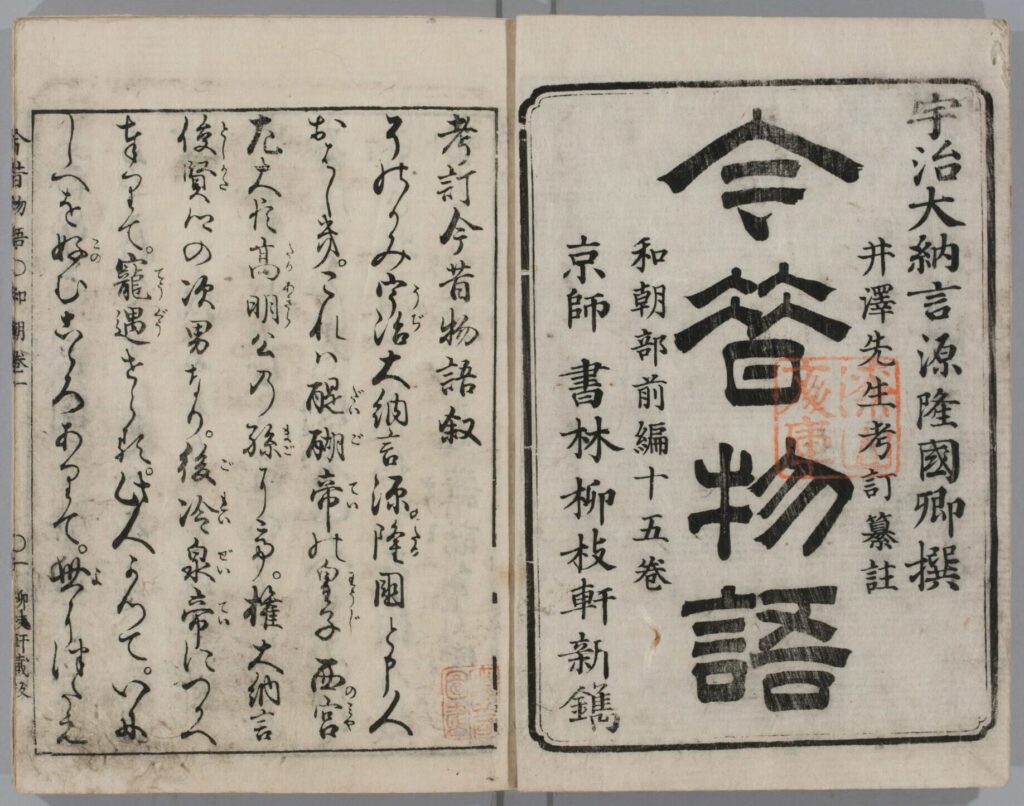 宇治大納言源隆國卿撰
井澤先生考訂纂註
今昔物語
和朝部前編十五巻
京師 書林柳枝軒新鐫
漆山文庫
考訂今昔物語叙
そのかみ宇治大納言源隆國と申人
おはしき。これハ醍醐帝の皇子西宮
左大臣高明公の孫にて。權大納言
俊賢卿の次男なり。後冷泉帝につかへ
奉りて。寵遇せらる。此人かつて。いに
しへを好むこゝろありて。世につたえ
今昔物語〇和朝巻一 〇一 柳枝軒蔵板